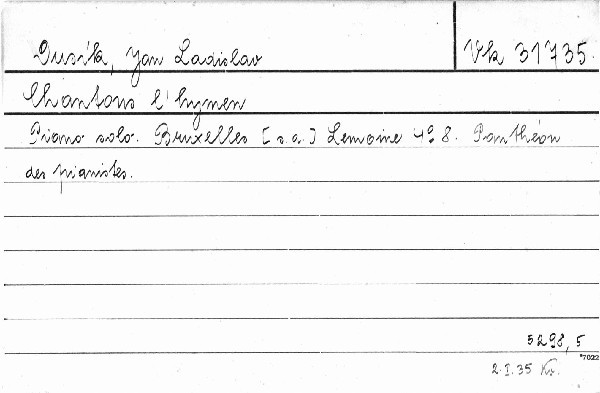 Dusík, Jan Ladislav
Vk 31735.
Chantons l'hymen
Piano solo. Bruxelles [s.a.] Lemoine 4° 8. Panthéon
des pianistes.
5298,5
*7022
2.I.35 Kr.